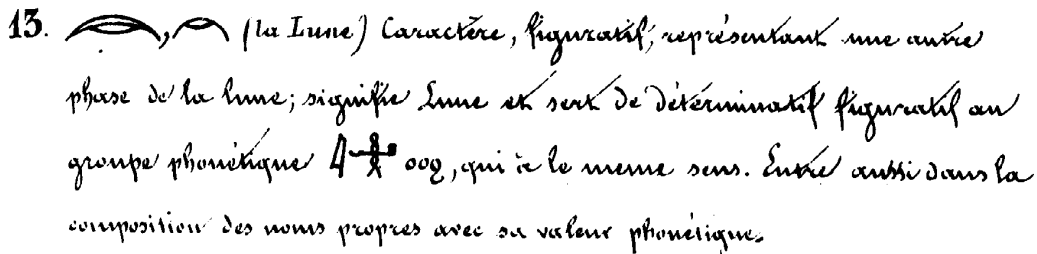 13. 𓇹, 𓇹 (la Lune) Caractère, figuratif, représentant une autre
phase de la lune; signifie Lune et sert de déterminatif figuratif au
groupe phonétique ооϩ, qui à le meme sens. Entre aussi dans la
composition des noms propres avec sa valeur phonétique.